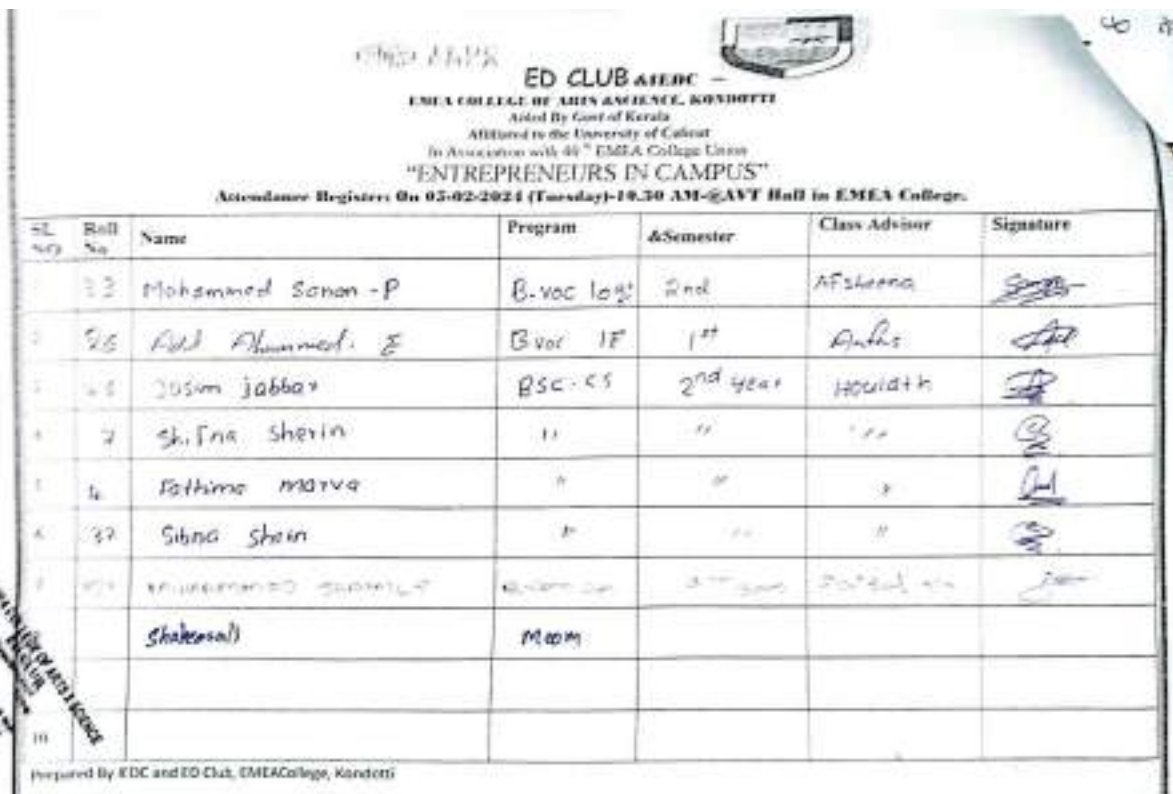 ED CLUB &IEDC -
EMEA COLLEGE OF ARTS &SCIENCE, KONDOTTI
Aided By Govt of Kerala
Affiliated to the University of Calicut
In Association with 40th EMEA College Union
"ENTREPRENEURS IN CAMPUS"
Attendance Register: On 05-02-2024 (Tuesday)-10.30 AM-@AVT Hall in EMEA College.
SL NO Roll No Name Program &Semester Class Advisor Signature
1 33 Mohammed Sanan - P B.voc 2nd Afsheena
2 E B voc IF 1st
3 Jasim jabbar BSC.CS 2nd year Howlath
4 7 Shifna Sherin " " "
5 4 Fathima marva " " "
6 37 Sibna " " "
7
Moom
10
Prepared By IEDC and ED Club, EMEACollege, Kondotti
COLLEGE OF ARTS & SCIENCE